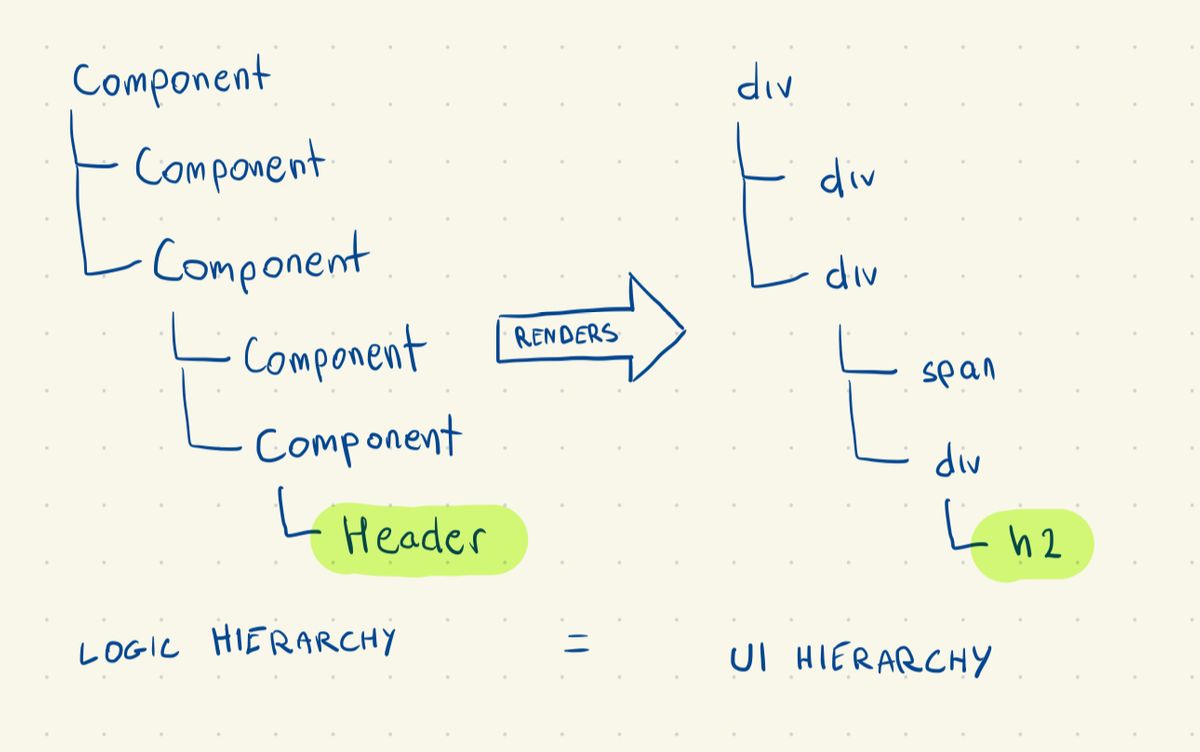 Component
Component
Component
Component
Component
Header
RENDERS
div
div
div
span
div
h2
LOGIC HIERARCHY = UI HIERARCHY